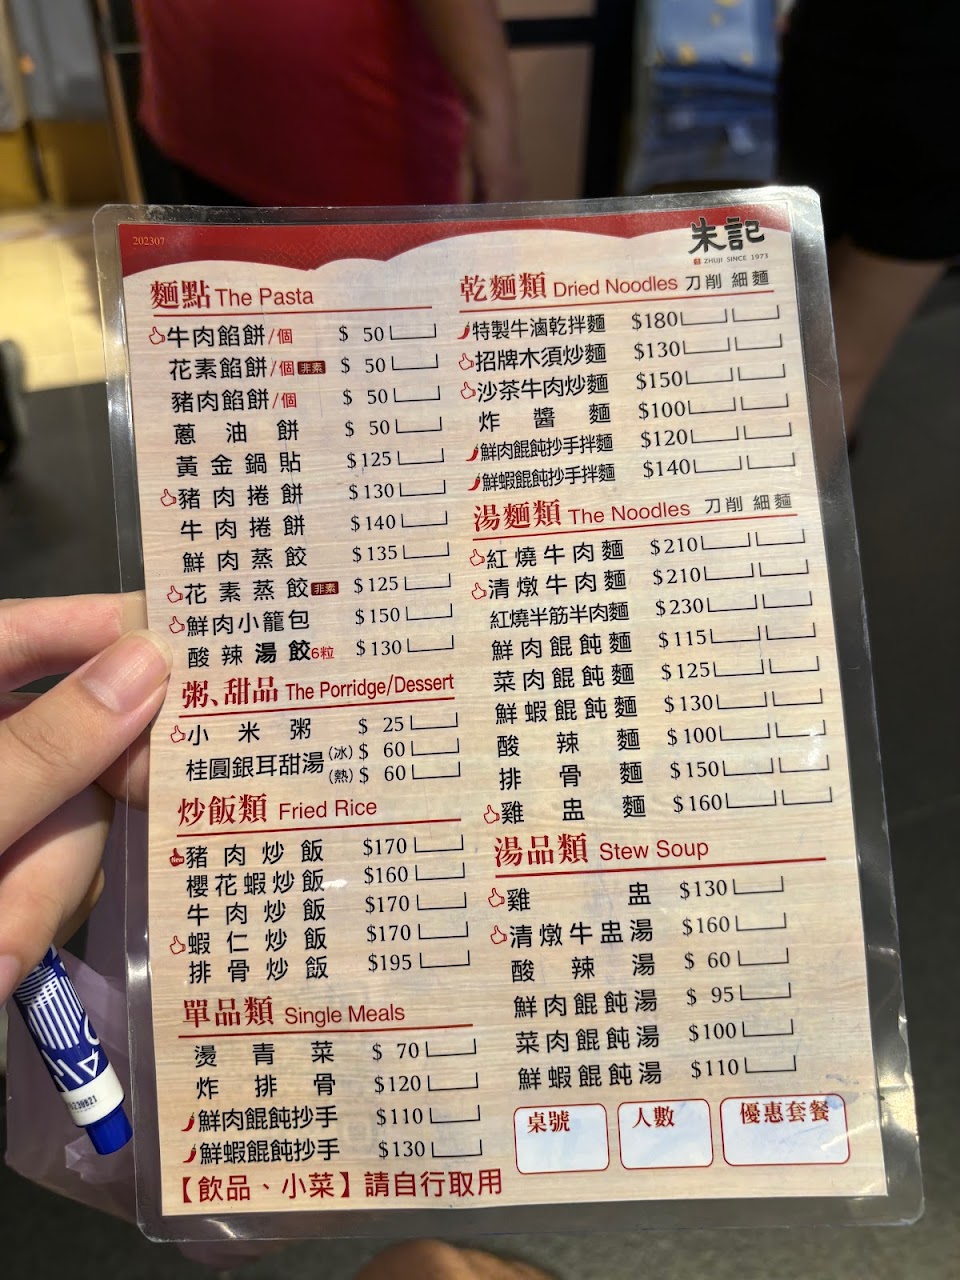 202307
朱記
ZHUJI SINCE 1973
麵點 The Pasta
牛肉餡餅/個 $ 50
花素餡餅/個 非素 $ 50
豬肉餡餅/個 $ 50
蔥油餅 $ 50
黃金鍋貼 $125
豬肉捲餅 $130
牛肉捲餅 $140
鮮肉蒸餃 $135
花素蒸餃 非素 $125
鮮肉小籠包 $150
酸辣湯餃6粒 $130
粥、甜品 The Porridge/Dessert
小米粥 $ 25
桂圓銀耳甜湯 (冰) $ 60
(熱) $ 60
炒飯類 Fried Rice
New 豬肉炒飯 $170
櫻花蝦炒飯 $160
牛肉炒飯 $170
蝦仁炒飯 $170
排骨炒飯 $195
單品類 Single Meals
燙青菜 $ 70
炸排骨 $120
鮮肉餛飩抄手 $110
鮮蝦餛飩抄手 $130
【飲品、小菜】請自行取用
乾麵類 Dried Noodles 刀削 細麵
特製牛滷乾拌麵 $180
招牌木須炒麵 $130
沙茶牛肉炒麵 $150
炸醬麵 $100
鮮肉餛飩抄手拌麵 $120
鮮蝦餛飩抄手拌麵 $140
湯麵類 The Noodles 刀削 細麵
紅燒牛肉麵 $210
清燉牛肉麵 $210
紅燒半筋半肉麵 $230
鮮肉餛飩麵 $115
菜肉餛飩麵 $125
鮮蝦餛飩麵 $130
酸辣麵 $100
排骨麵 $150
雞盅麵 $160
湯品類 Stew Soup
雞盅 $130
清燉牛盅湯 $160
酸辣湯 $ 60
鮮肉餛飩湯 $ 95
菜肉餛飩湯 $100
鮮蝦餛飩湯 $110
桌號 人數 優惠套餐